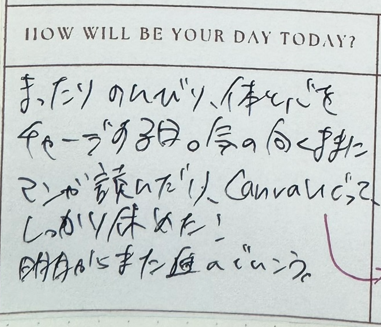 HOW WILL BE YOUR DAY TODAY?
まったりのんびり、体と心を
チャージする日。気の向くままに
マンガ読んだり、Canvaいじって、
しっかり休めた!
明日からまた進んでいこう。